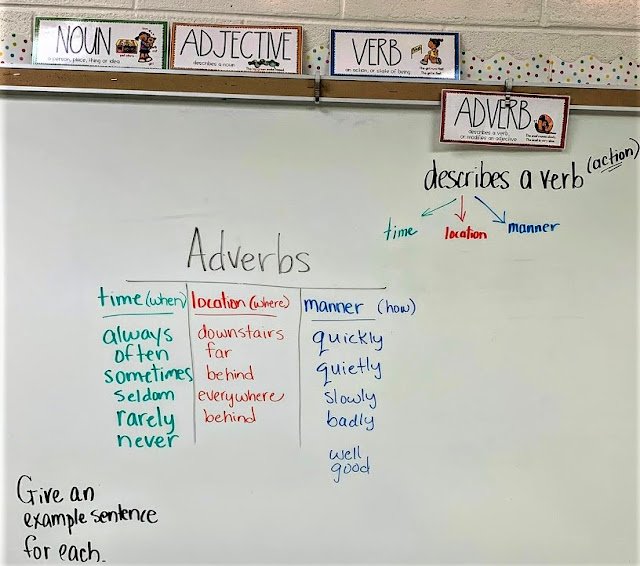 NOUN
a person, place, thing or idea
ADJECTIVE
describes a noun
VERB
an action, or state of being
ADVERB
describes a verb,
or modifies an adjective
describes a verb (action)
time location manner
Adverbs
time (when) location (where) manner (how)
always downstairs quickly
often far quietly
sometimes behind slowly
seldom everywhere badly
rarely behind
never
well
good
Give an
example sentence
for each.